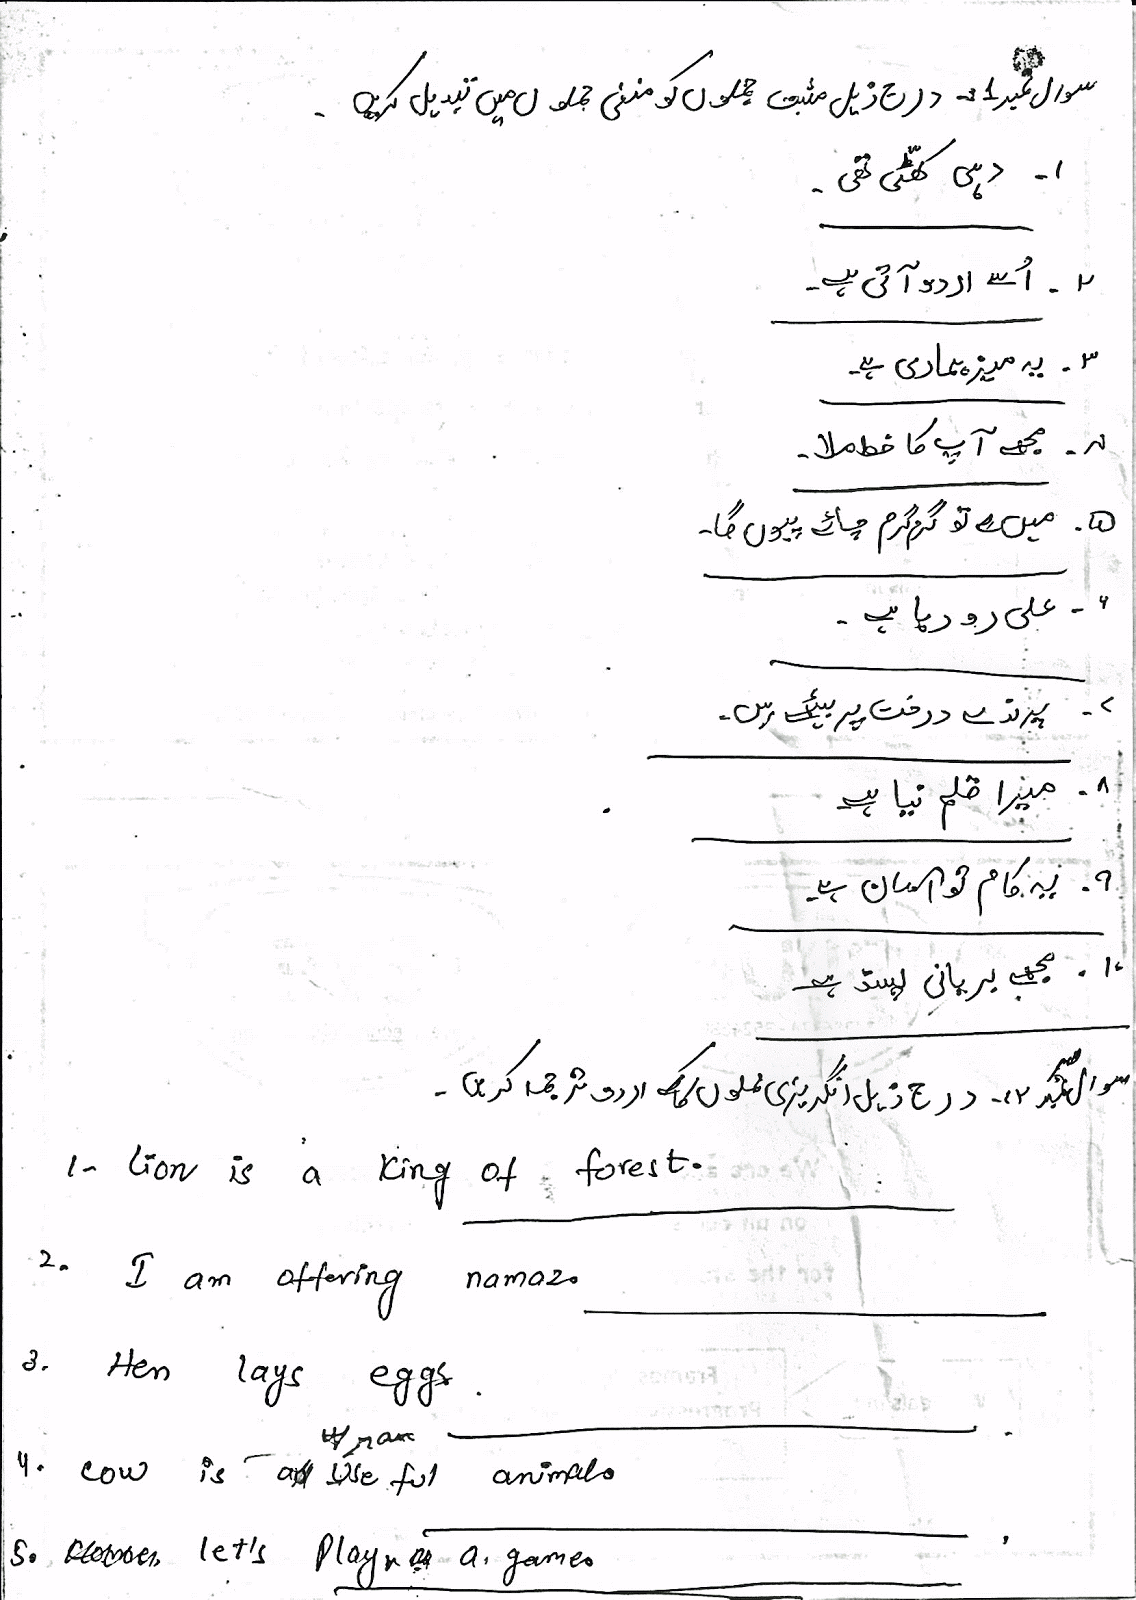 سوال نمبر 1۔ درج ذیل مثبت جملوں کو منفی جملوں میں تبدیل کریں۔
۱۔ دہی کھٹّی تھی۔
۲۔ اُسے اردو آتی ہے۔
۳۔ یہ میز ہماری ہے۔
۴۔ مجھے آپ کا خط ملا۔
۵۔ میں تو گرم گرم چائے پیوں گا۔
۶۔ علی رو رہا ہے۔
۷۔ پرندے درخت پر بیٹھے ہیں۔
۸۔ میرا قلم نیا ہے
۹۔ یہ کام تو آسان ہے۔
۱۰۔ مجھے بریانی پسند ہے
سوال نمبر ۲۔ درج ذیل انگریزی جملوں کا اردو ترجمہ کریں۔
1- Lion is a King of forest.
2. I am offering namaz.
3. Hen lays eggs.
4. cow is a useful animal.
5. let's Play a game.